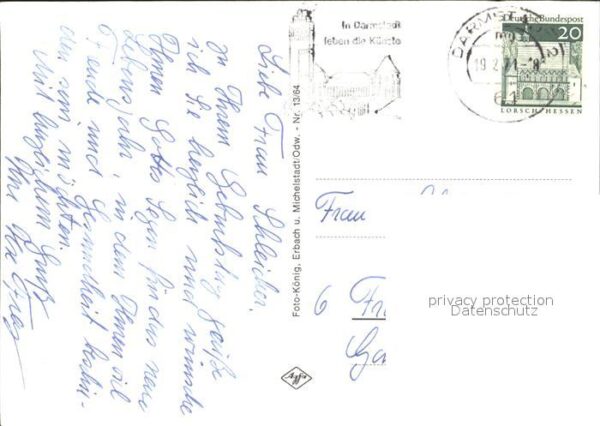 In Darmstadt
leben die Künste
DARMSTADT
19.2.71-8
61
Deutsche Bundespost
20
LORSCH/HESSEN
Liebe Frau Schleicher,
zu Ihrem Geburtstag grüße
ich Sie herzlich und wünsche
Ihnen Gottes Segen für das neue
Lebensjahr, in dem Ihnen viel
Freude und Gesundheit beschie-
den sein möchten.
Mit herzlichem Gruß
Ihre
Foto-König, Erbach u. Michelstadt/Odw. - Nr. 13/64
Agfa
Frau
6 Fr
privacy protection
Datenschutz